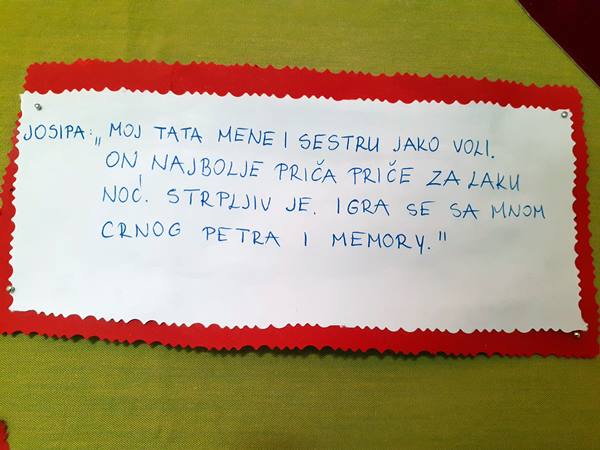 JOSIPA: „MOJ TATA MENE I SESTRU JAKO VOLI.
ON NAJBOLJE PRIČA PRIČE ZA LAKU
NOĆ. STRPLJIV JE. IGRA SE SA MNOM
CRNOG PETRA I MEMORY."